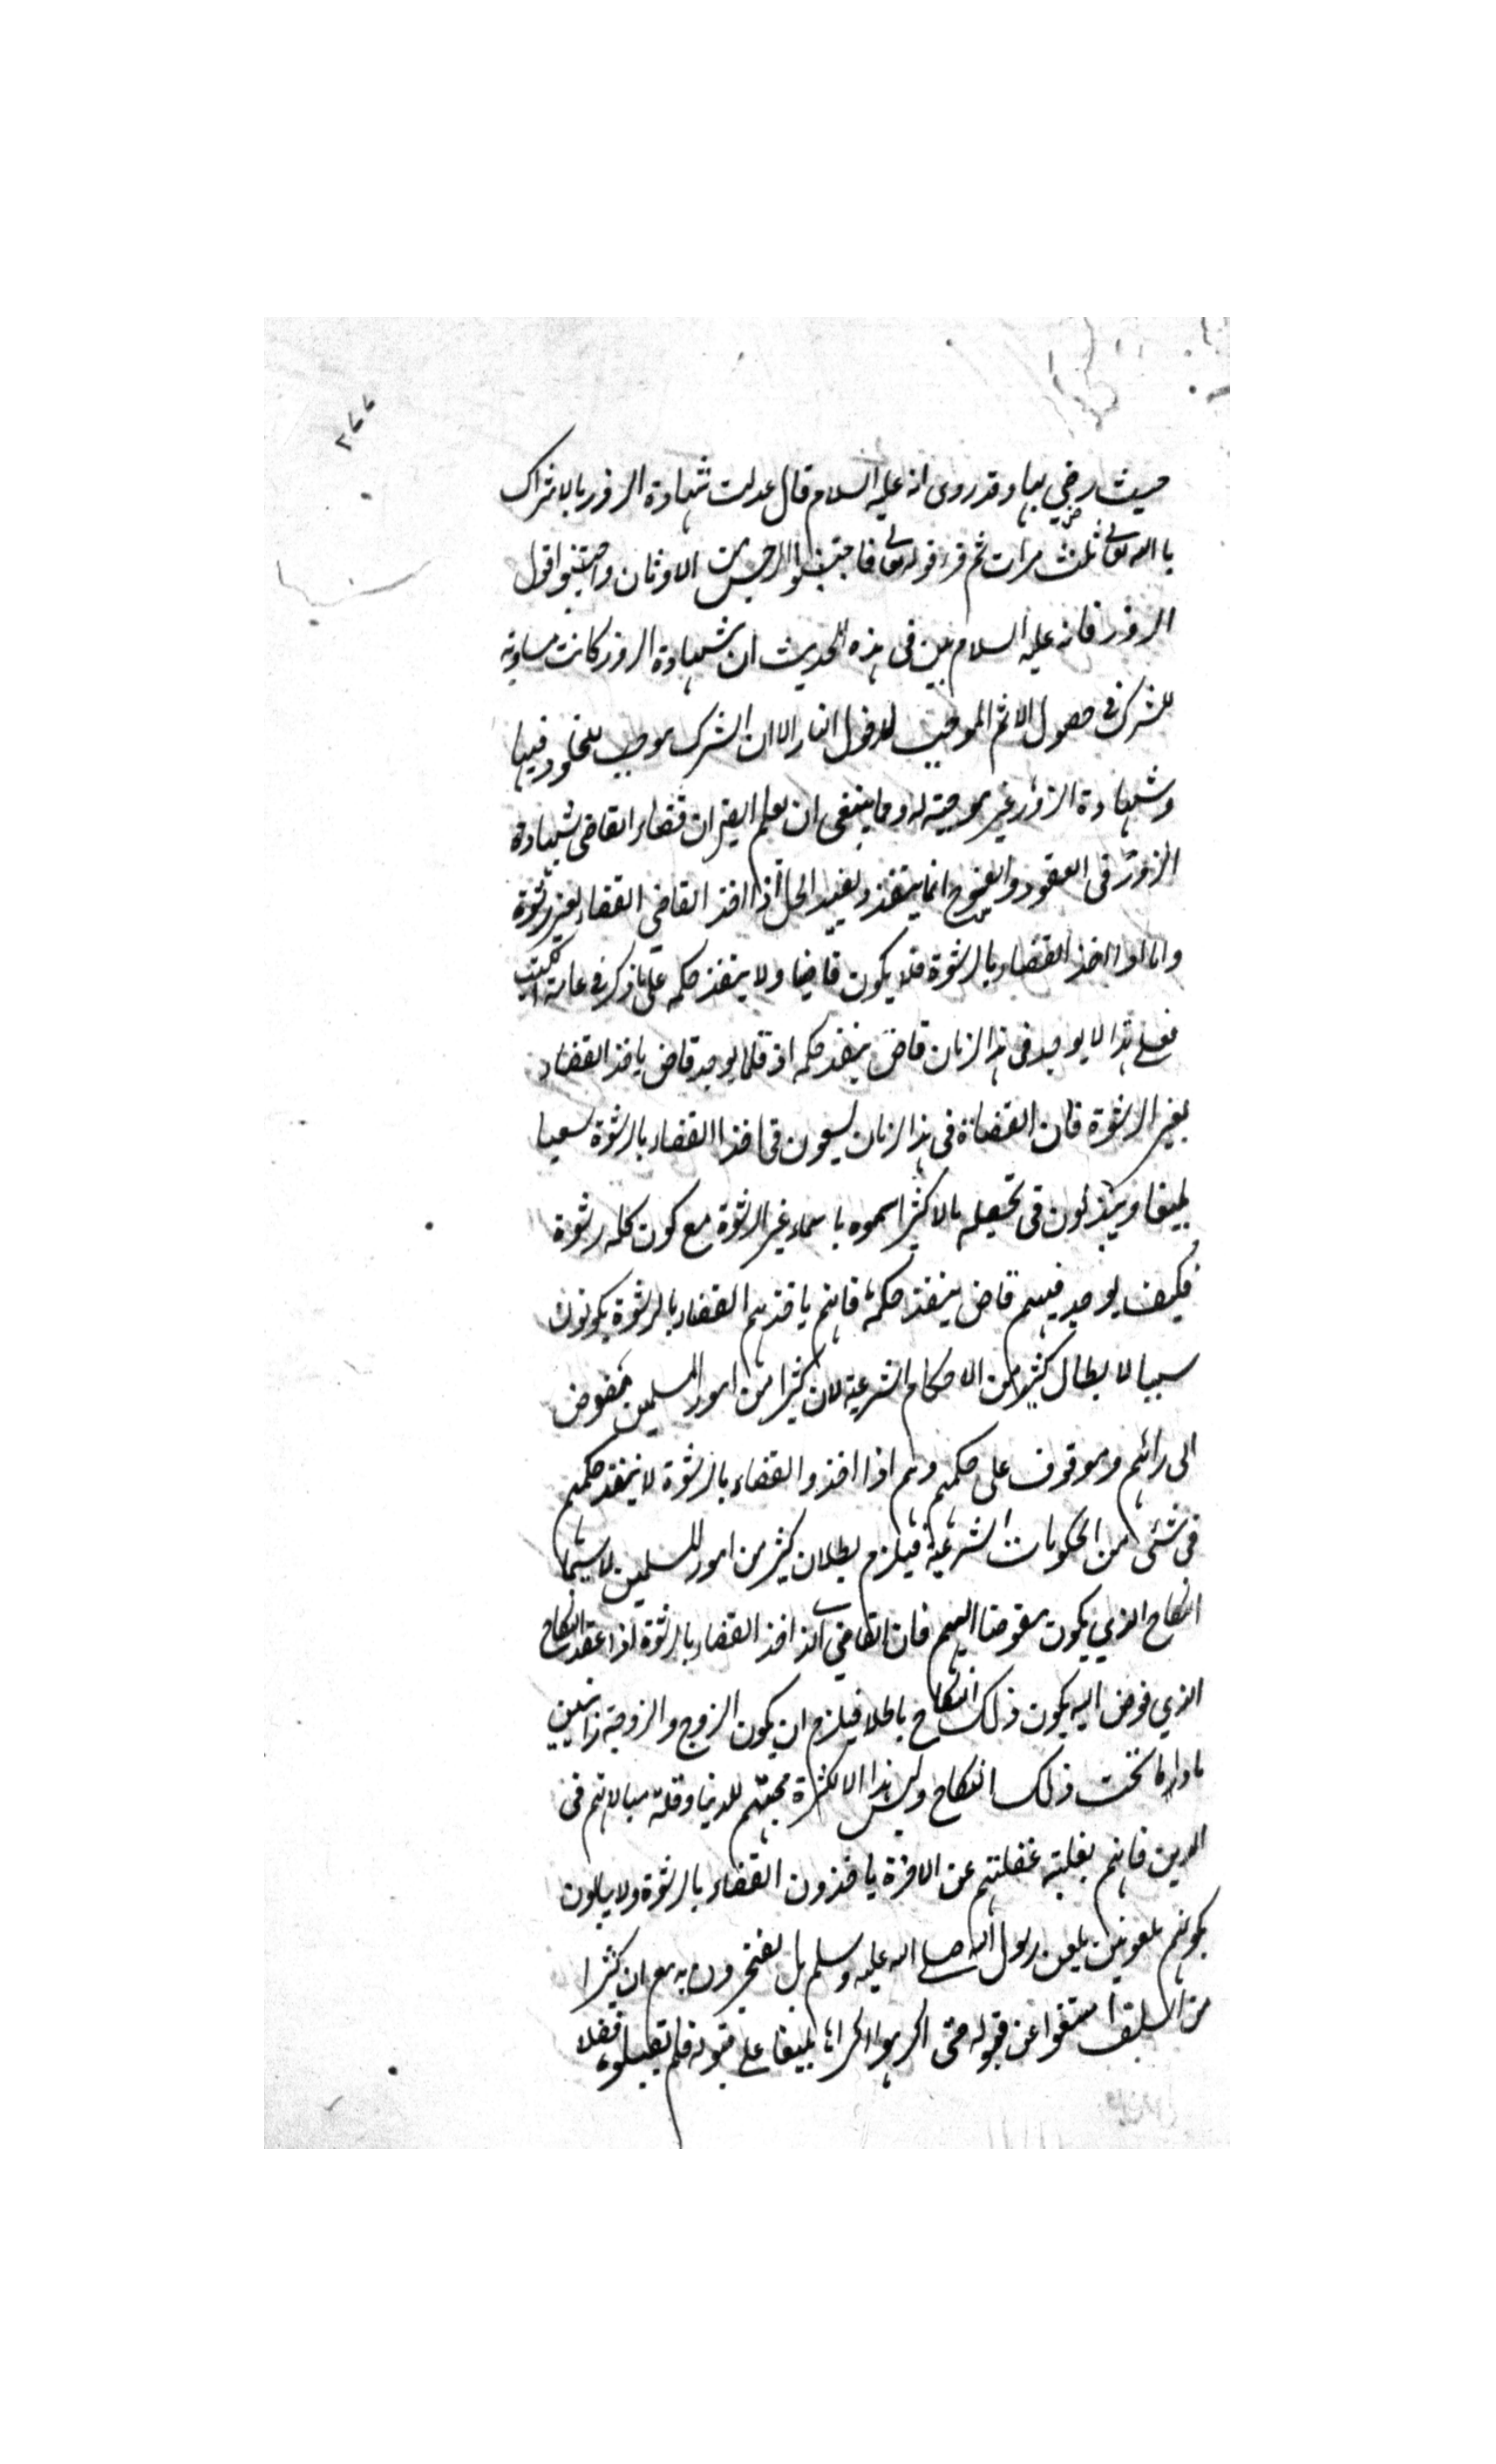 ٢٧٧
حيث رضي بها وقد روى انه عليه السلام قال عدلت شهادة الزور بالاشراك
بالله تعالى ثلث مرات ثم قرء قوله تعالى فاجتنبوا الرجس من الاوثان واجتنبوا قول
الزور فانه عليه السلام بين في هذه الحديث ان شهادة الزور كانت مساوية
للشرك في حصول الاثم الموجب لدخول النار الا ان الشرك موجب للخلود فيها
وشهادة الزور غير موجبة له ومما ينبغي ان يعلم ان قضاء القاضي بشهادة
الزور في العقود والفسوخ انما ينفذ ويفيد الحل اذا اخذ القاضي القضاء بغير رشوة
واما اذا اخذ القضاء بالرشوة فلا يكون قاضيا ولا ينفذ حكمه على ما ذكر في عامة الكتب
فعلى هذا لا يوجد في هذا الزمان قاض ينفذ حكمه اذ قلما يوجد قاض ياخذ القضاء
بغير الرشوة فان القضاة في هذا الزمان يسعون في اخذ القضاء بالرشوة سعيا
بليغا ويبذلون في تحصيله مالا كثيرا سموه باسماء غير الرشوة مع كون كله رشوة
فكيف يوجد فيهم قاض ينفذ حكمه فانهم ياخذهم القضاء بالرشوة يكونون
سببا لابطال كثير من الاحكام الشرعية لان كثيرا من امور المسلمين مفوض
الى رائهم وموقوف على حكمهم وهم اذا اخذوا القضاء بالرشوة لا ينفذ حكمهم
في شئ من الحكومات الشرعية فيلزم بطلان كثير من امور المسلمين لا سيما
النكاح الذي يكون مفوضا اليهم فان القاضي الذي اخذ القضاء بالرشوة اذا عقد النكاح
الذي فوض اليه يكون ذلك النكاح باطلا فيلزم ان يكون الزوج والزوجة زانيين
ما داما تحت ذلك النكاح وليس هذا الا لكثرة محبتهم للدنيا وقلة مبالاتهم في
الدين فانهم بغلبة غفلتهم عن الاخرة ياخذون القضاء بالرشوة ولا يبالون
بكونهم ملعونين بلعن رسول الله صلى الله عليه وسلم بل يفتخرون به مع ان كثيرا
من السلف امتنعوا عن قبوله حتى اكرهوا اكراها بليغا على قبوله فلم يقبلوه فضلا